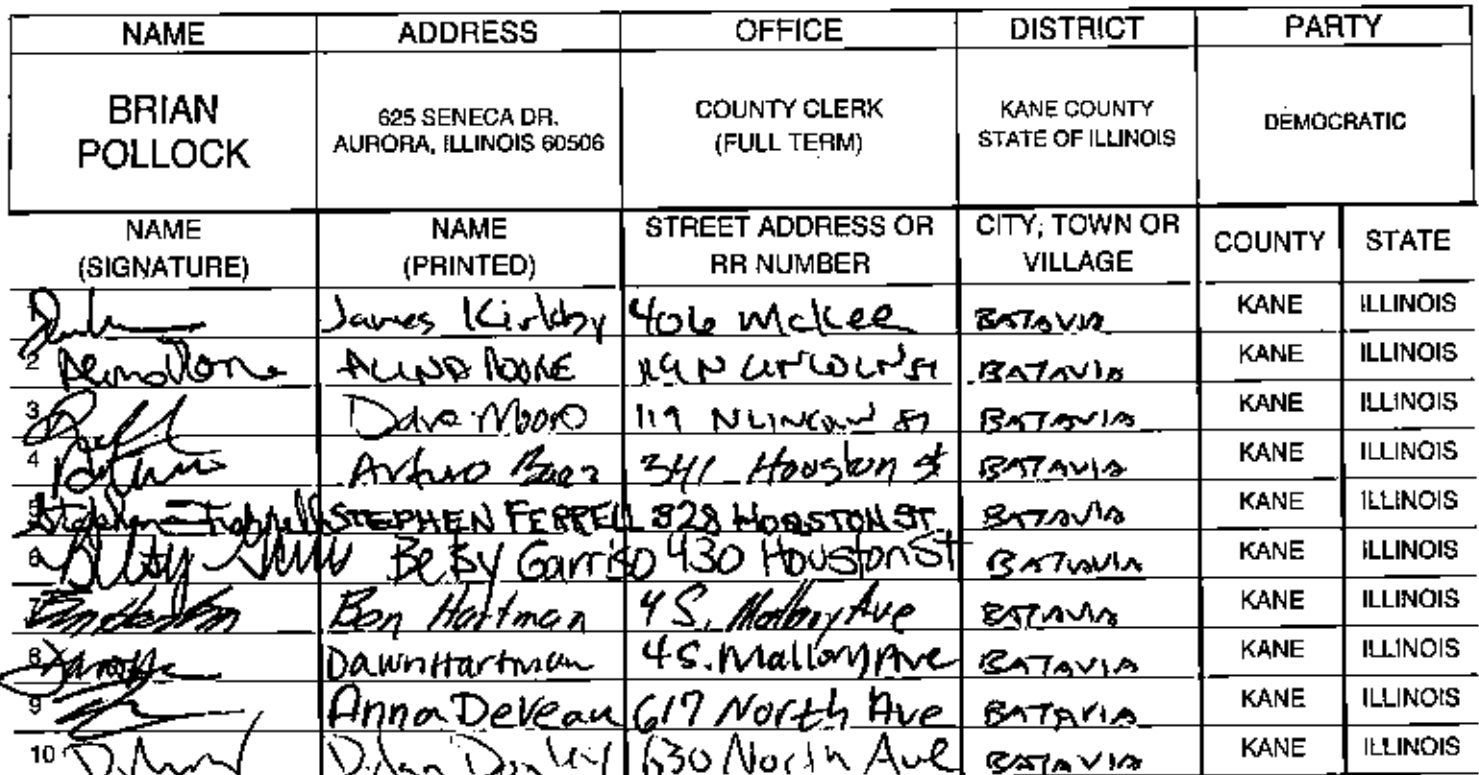 NAME ADDRESS OFFICE DISTRICT PARTY
BRIAN POLLOCK 625 SENECA DR. AURORA, ILLINOIS 60506 COUNTY CLERK (FULL TERM) KANE COUNTY STATE OF ILLINOIS DEMOCRATIC
NAME (SIGNATURE) NAME (PRINTED) STREET ADDRESS OR RR NUMBER CITY, TOWN OR VILLAGE COUNTY STATE
James Kirkby 406 McKee BATAVIA KANE ILLINOIS
2 119 N LINCOLN ST BATAVIA KANE ILLINOIS
3 Dave Moore 119 N LINCOLN ST BATAVIA KANE ILLINOIS
4 Arturo Baez 341 Houston St BATAVIA KANE ILLINOIS
5 Stephen Ferrell STEPHEN FERRELL 328 HOUSTON ST BATAVIA KANE ILLINOIS
6 Betsy Garriso 430 Houston St BATAVIA KANE ILLINOIS
7 Ben Hartman 4 S. Mallory Ave BATAVIA KANE ILLINOIS
8 Dawn Hartman 4 S. Mallory Ave BATAVIA KANE ILLINOIS
9 Anna DeVeau 617 North Ave BATAVIA KANE ILLINOIS
10 630 North Ave BATAVIA KANE ILLINOIS